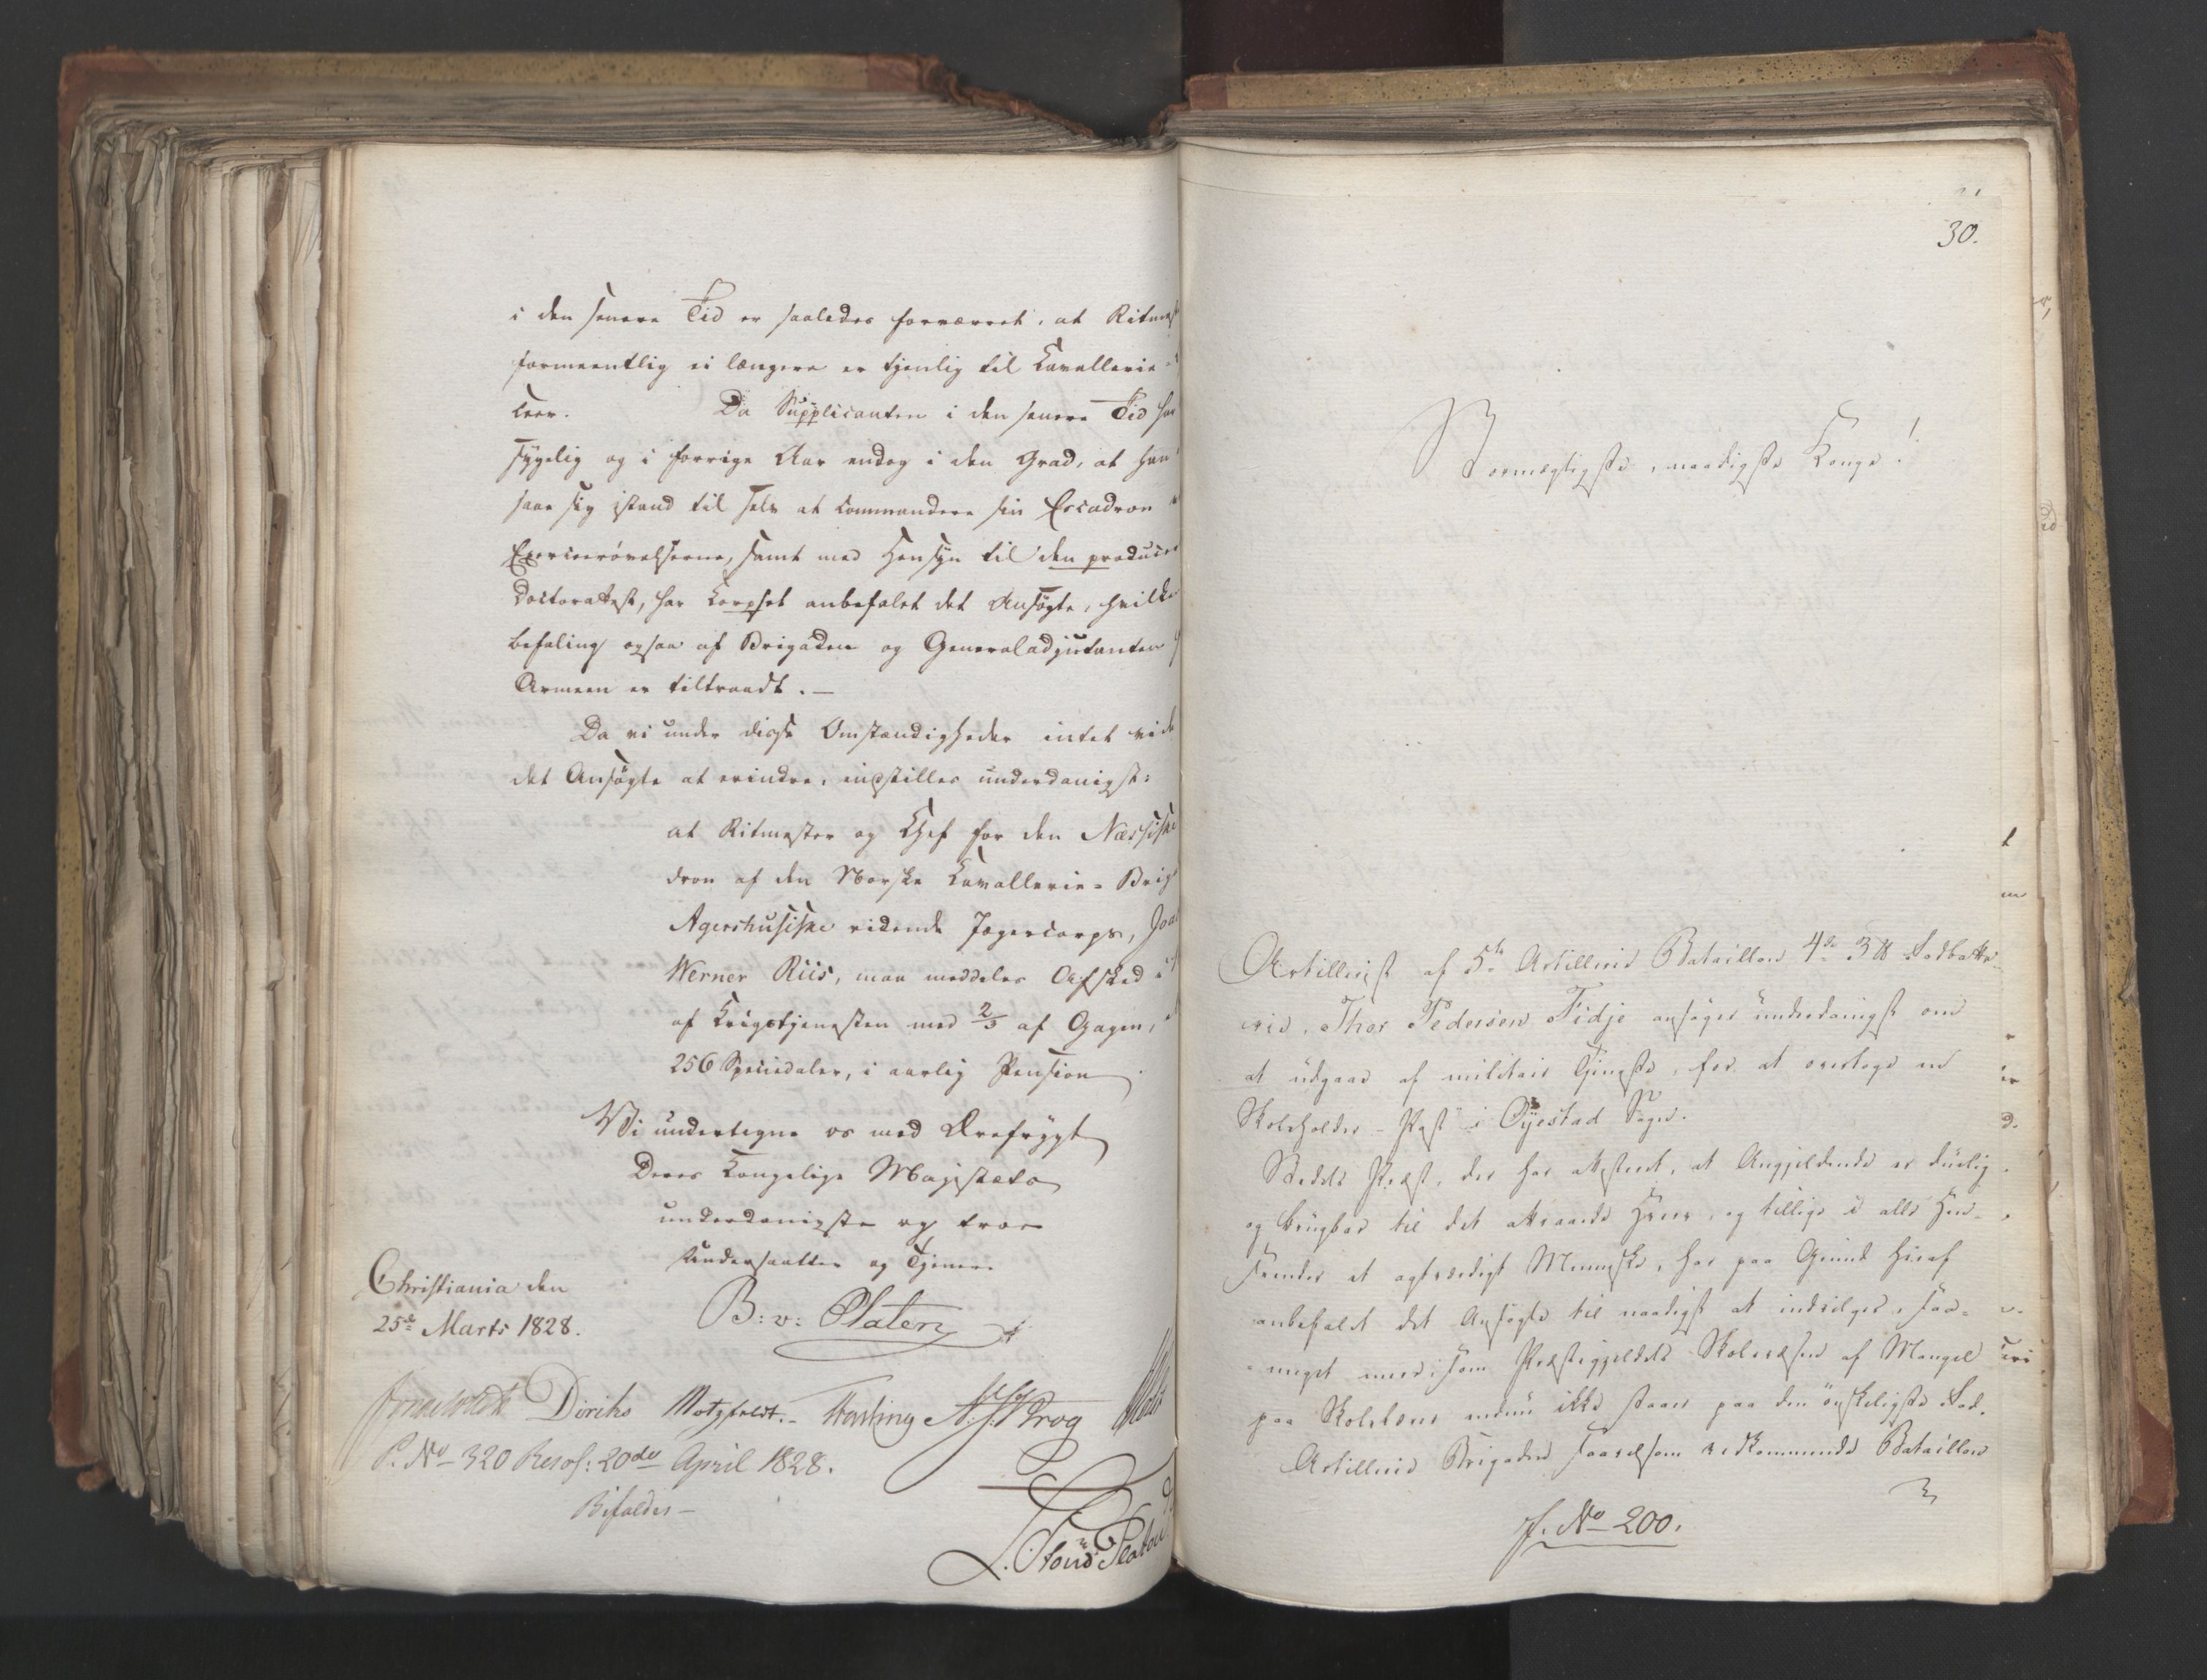 i den senere Tid er saaledes forværret, at Ritmest
formeentlig ei længere er tjenlig til Cavallerie
teer. Da Supplicanten i den senere Tid har
sygelig og i forrige Aar endog i den Grad, at han
saae sig istand til selv at commandere sin Escadron
Exerceerøvelserne, samt med Hensyn til den produce
Doctorattest, har Corpset anbefalet det Ansøgte, hvilke
befaling ogsaa af Brigaden og Generaladjutanten
Armeen er tiltraadt.—
Da vi under disse Omstændigheder intet vide
det Ansøgte at erindre, indstilles underdanigst:
at Ritmester og Chef for den Næssiske
dron af den Norske Cavallerie-Brig
Agershusiske ridende Jægercorps, Joa
Werner Riis, maa meddeles Afsked i
af Krigstjenesten med 2/3 af Gagen,
256 Speciedaler, i aarlig Pension
Vi undertegne os med Ærefrygt
Deres Kongelige Majestæts
underdanigste og troe
Undersaatter og Tjenere
Christiania den
25de Marts 1828.
B: v: Platen
Diriks Motzfeldt.- Fasting Krog
P. No 320 Resol: 20de April 1828.
Bifaldes—
30.
Stormægtigste, naadigste Konge!
Artillerist af 5te Artillerie Bataillon 4de 3 ℔ Fodbatte-
erie, Thor Pedersen Fidje ansøger underdanigst om
at udgaae af militair Tjeneste, for at overtage en
Skoleholder-Post i Øyestad Sogn.
Stedets Præst, der har attesteret, at Angjeldende er duelig
og brugbar til det attraaede Hverv, og tillige i alle Hen-
seender et agtværdigt Menneske, har paa Grund heraf
anbefalet det Ansøgte til naadigst at indvilges, saa-
meget meer som Præstegjeldets Skolevæsen af Mangel
paa Skolelærer endnu ikke staaer paa den ønskeligste Fod.
Artillerie Brigaden saavelsom vedkommende Bataillon
J. No 200.